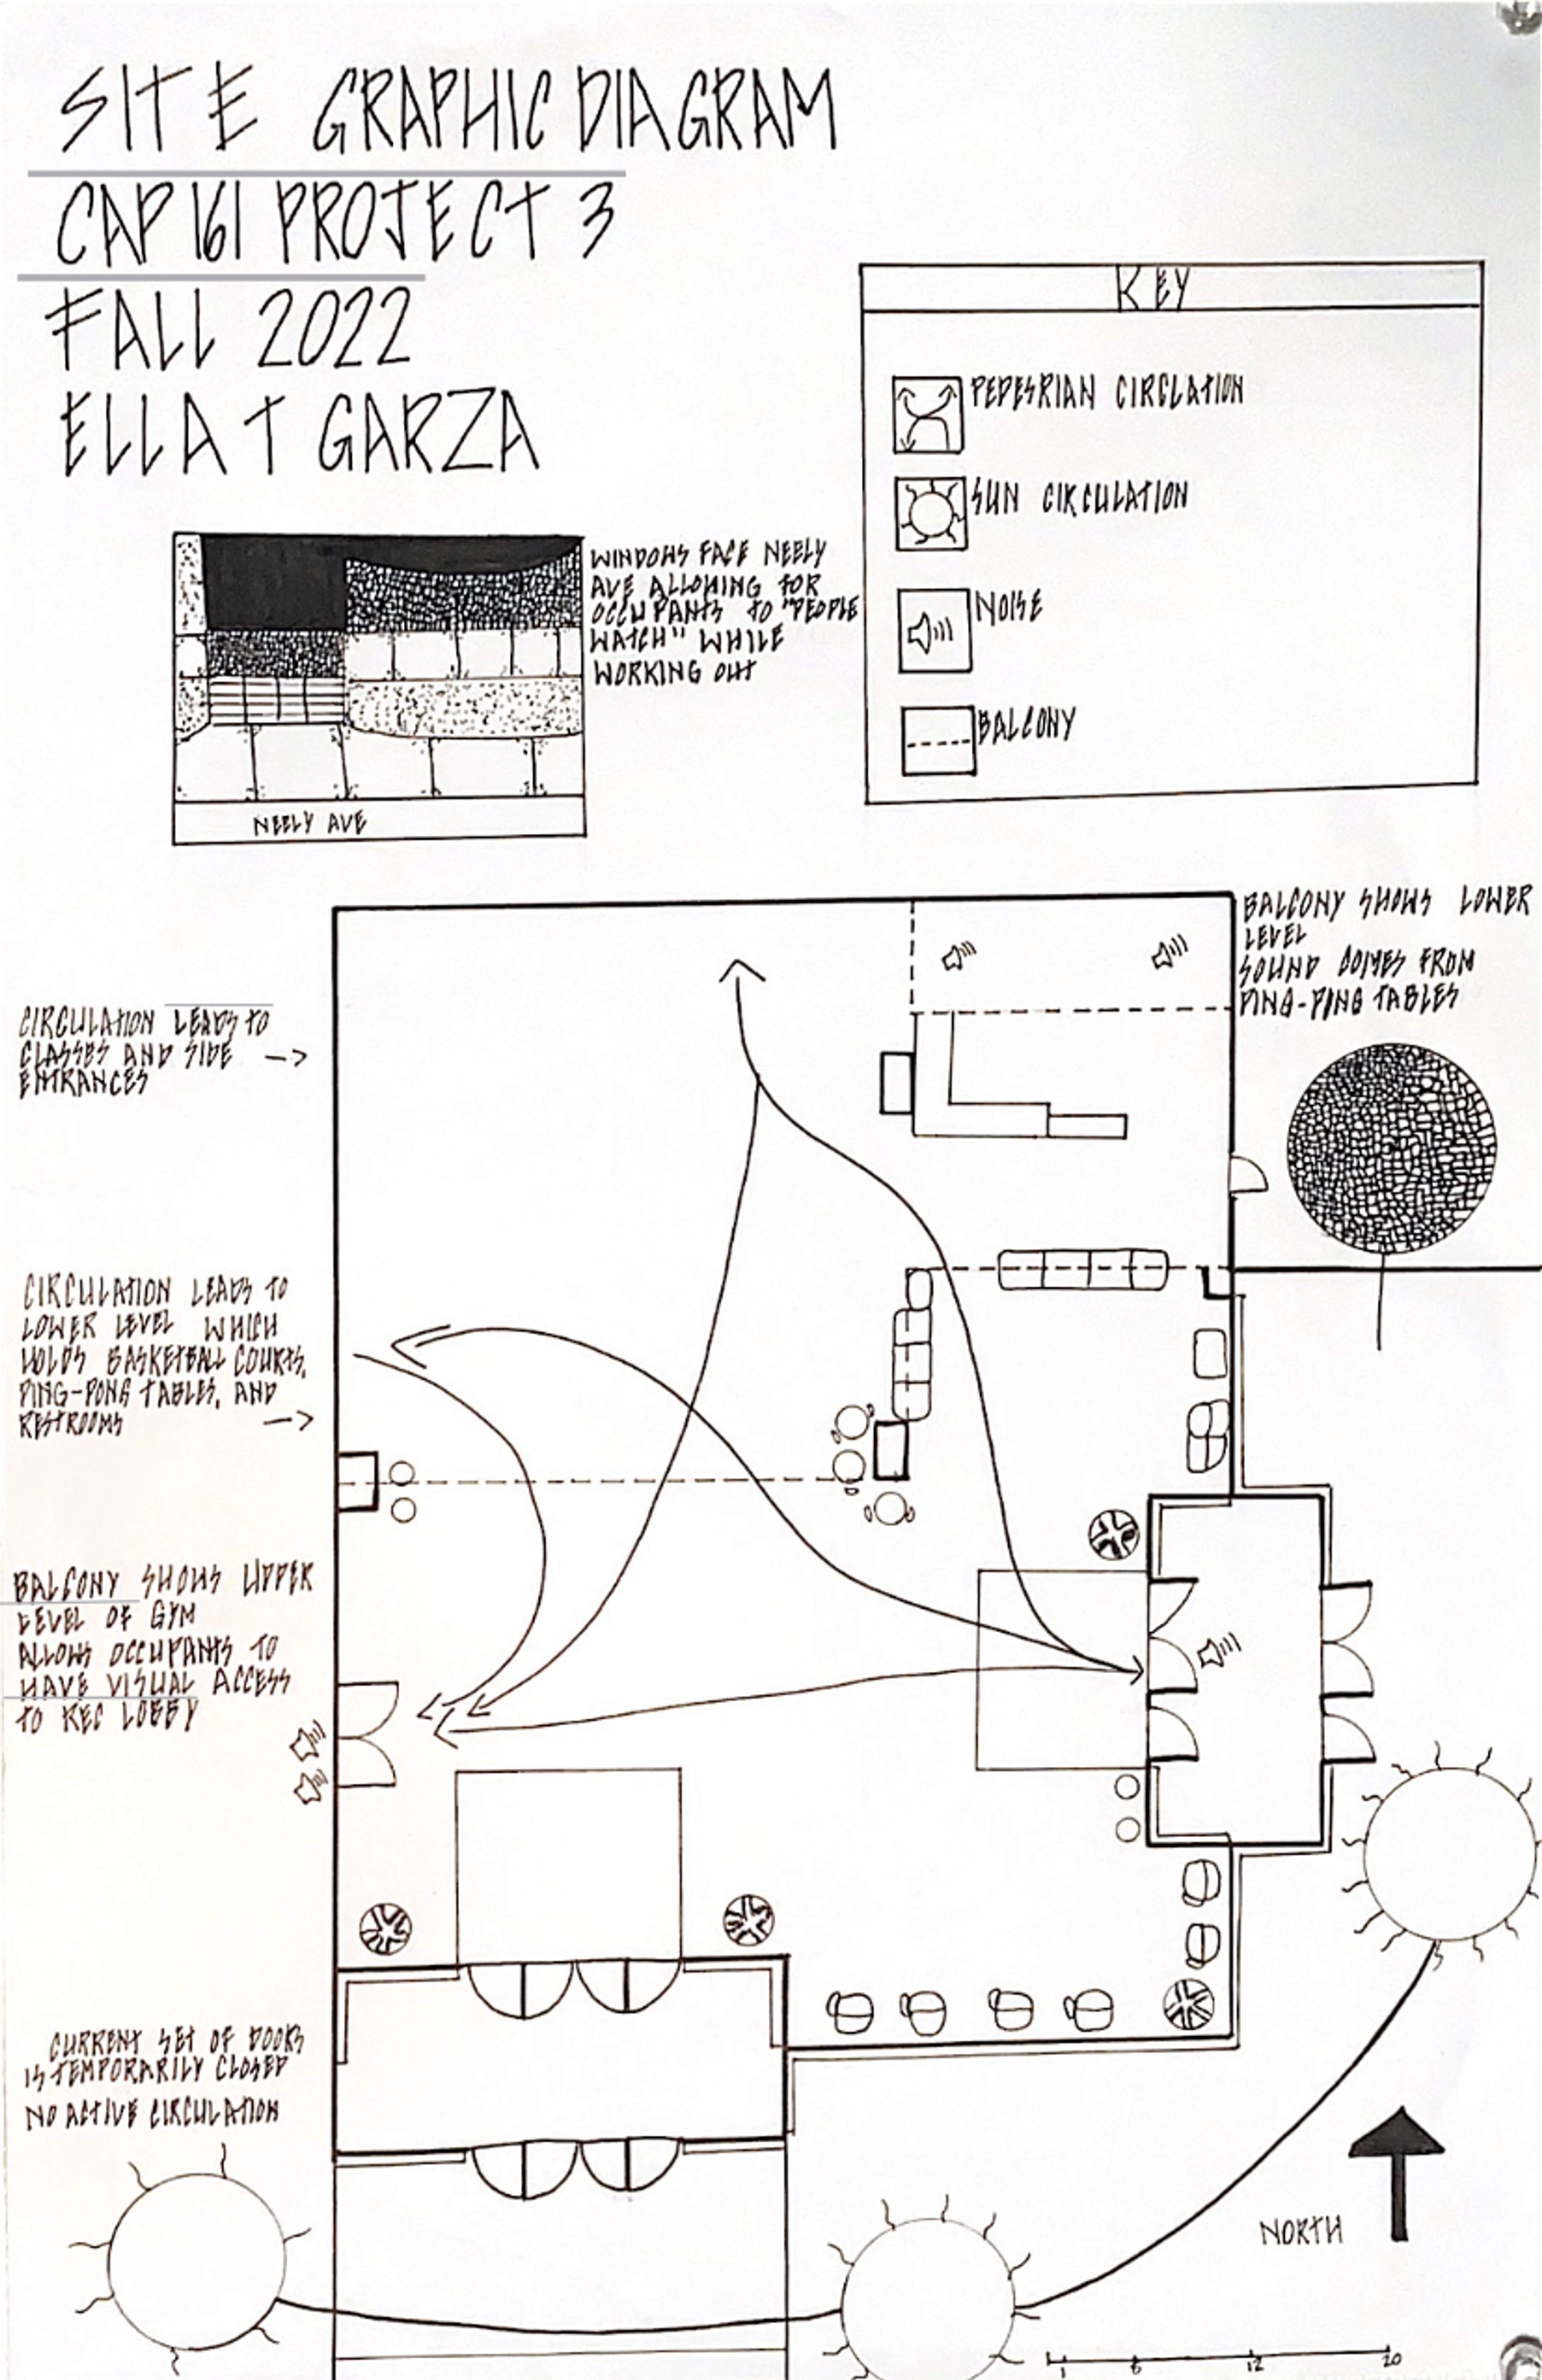 SITE GRAPHIC DIAGRAM
CAP 161 PROJECT 3
FALL 2022
ELLA T GARZA
KEY
PEDESRIAN CIRCLATION
SUN CIRCULATION
NOISE
BALCONY
WINDOWS FACE NEELY
AVE ALLOWING FOR
OCCUPANTS TO "PEOPLE
WATCH" WHILE
WORKING OUT
NEELY AVE
BALCONY SHOWS LOWER
LEVEL
SOUND COMES FROM
PING-PING TABLES
CIRCULATION LEADS TO
CLASSES AND SIDE
ENTRANCES
CIRCULATION LEADS TO
LOWER LEVEL WHICH
HOLDS BASKETBALL COURTS,
PING-PONG TABLES, AND
RESTROOMS
BALCONY SHOWS UPPER
LEVEL OF GYM
ALLOWS OCCUPANTS TO
HAVE VISUAL ACCESS
TO REC LOBBY
CURRENT SET OF DOORS
IS TEMPORARILY CLOSED
NO ACTIVE CIRCULATION
NORTH
12 20